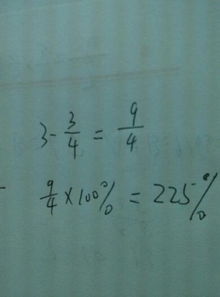 3 - 3/4 = 9/4
9/4 × 100% = 225%